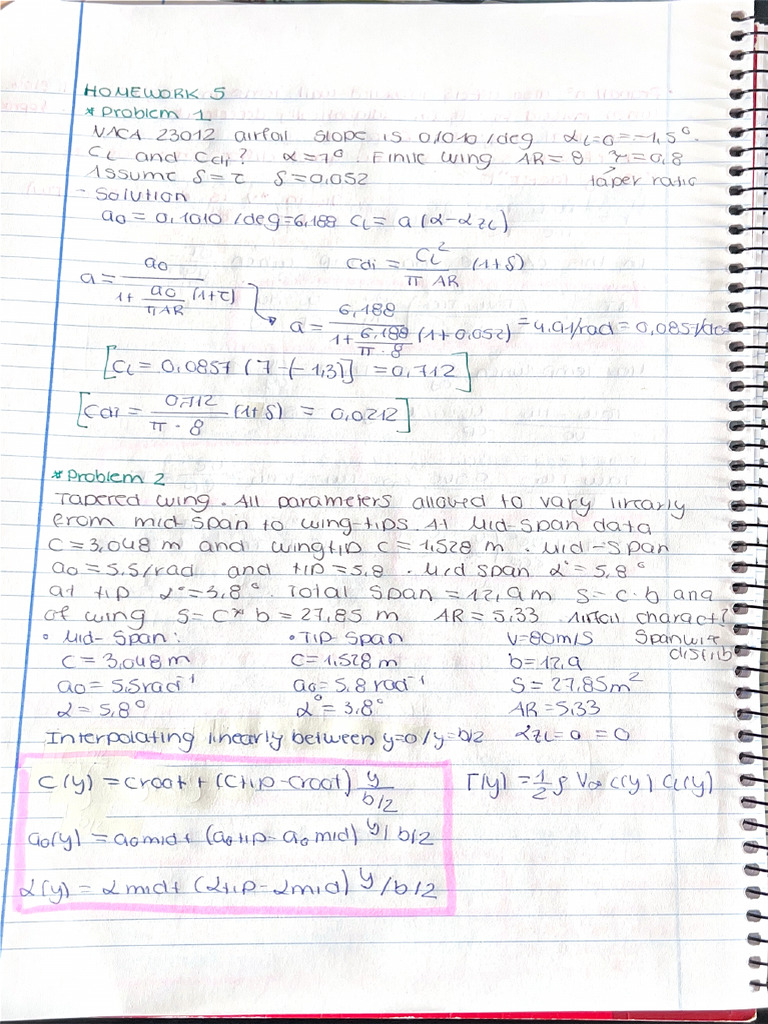 HOMEWORK 5
* Problem 1
NACA 23012 airfoil slope is 0,1010 /deg αL=0=-1,5°.
CL and Cdi? α=7° . Finite wing AR=8 τ=0,8
Assume δ=τ δ=0,052 taper ratio
- Solution
a0 = 0,1010 /deg=6,188 CL= a(α-αZL)
a = a0 / (1+ a0/πAR (1+τ)) Cdi = CL²/π AR (1+δ)
a = 6,188 / (1+ 6,188/π·8 (1+0,052)) = 4,91/rad = 0,0857/deg
[CL = 0,0857 (7-(-1,3)] = 0,712]
[Cdi = 0,712/π·8 (1+δ) = 0,0212]
* Problem 2
Tapered wing. All parameters allowed to vary linearly
from mid-span to wing-tips. At Mid-span data
C=3,048 m and wingtip C=1,528 m . Mid-span
a0=5,5/rad and tip=5,8 . Mid span α°=5,8°
at tip α°=3,8°. Total span=12,9m S=c·b and
of wing S=c*b=27,85 m AR=5,33 Airfoil charact?
• Mid-Span: • Tip-Span V=80m/s Spanwise distrib
C=3,048 m C=1,528 m b=12,9
a0=5,5rad⁻¹ a0=5,8 rad⁻¹ S=27,85m²
α=5,8° α°=3,8° AR=5,33
Interpolating linearly between y=0/y=b/2 αZL=0 =0
C(y) = Croot + (Ctip-Croot) y/b/2 Γ(y) = 1/2 ρ V∞ C(y) CL(y)
a0(y) = a0 mid+ (a0 tip- a0 mid) y/b/2
α(y) = α mid+ (αtip-αmid) y/b/2